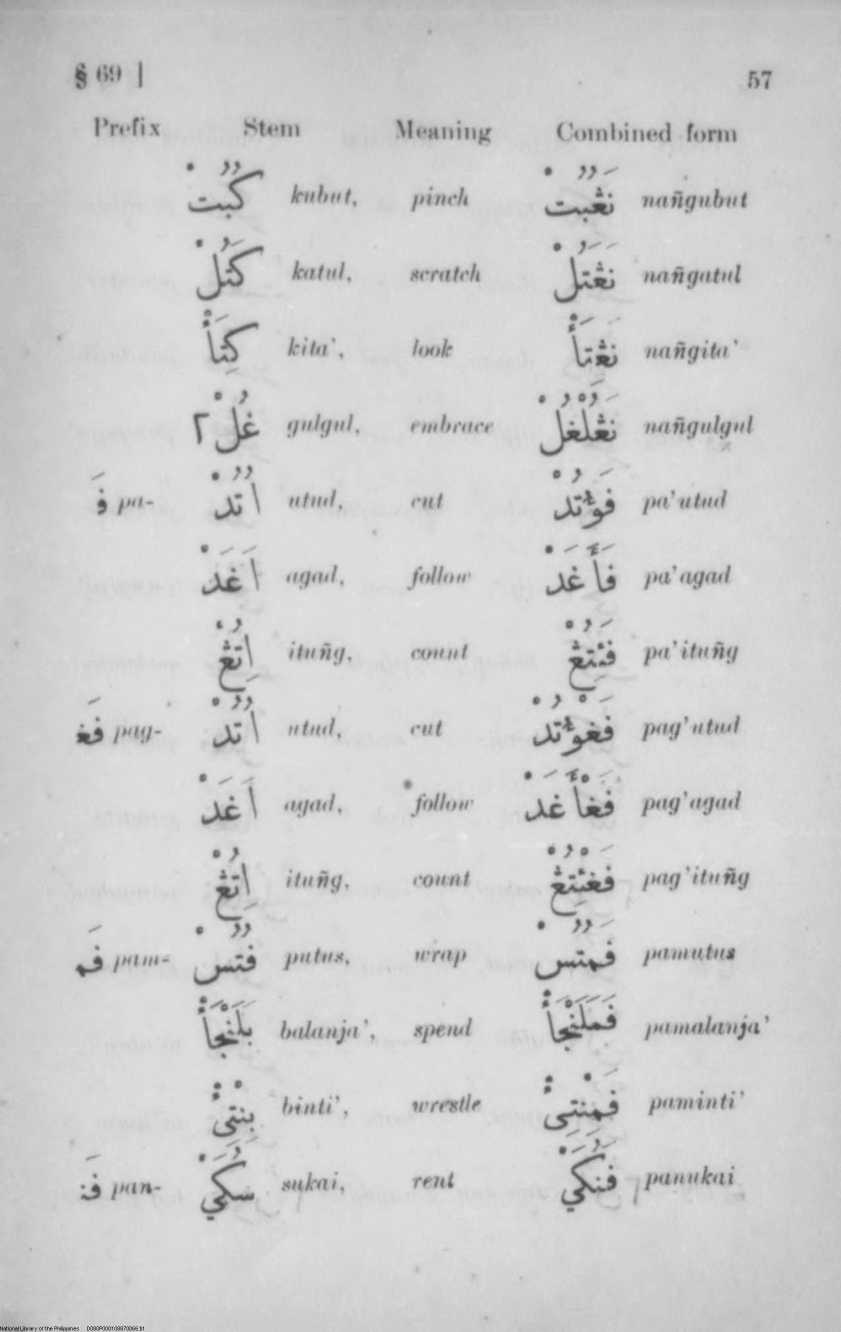 § 69 ] 57
Prefix Stem Meaning Combined form
كُبُتْ kubut, pinch نَڠُبُتْ nañgubut
كَتُلْ katul, scratch نَڠَتُلْ nañgatul
كِتَأْ kita’, look نَڠِتَأْ nañgita’
غُلْ٢ gulgul, embrace نَڠُلْغُلْ nañgulgul
فَ pa- اُتُدْ utud, cut فَؤُتُدْ pa’utud
اَغَدْ agad, follow فَأَغَدْ pa’agad
اِتُڠْ ituñg, count فَئِتُڠْ pa’ituñg
فَغ pag- اُتُدْ utud, cut فَغْؤُتُدْ pag’utud
اَغَدْ agad, follow فَغْأَغَدْ pag’agad
اِتُڠْ ituñg, count فَغْئِتُڠْ pag’ituñg
فَم pam- فُتُسْ putus, wrap فَمُتُسْ pamutus
بَلَنْجَأْ balanja’, spend فَمَلَنْجَأْ pamalanja’
بِنْتِئْ binti’, wrestle فَمِنْتِئْ paminti’
فَن pan- سُكَيْ sukai, rent فَنُكَيْ panukai
National Library of the Philippines